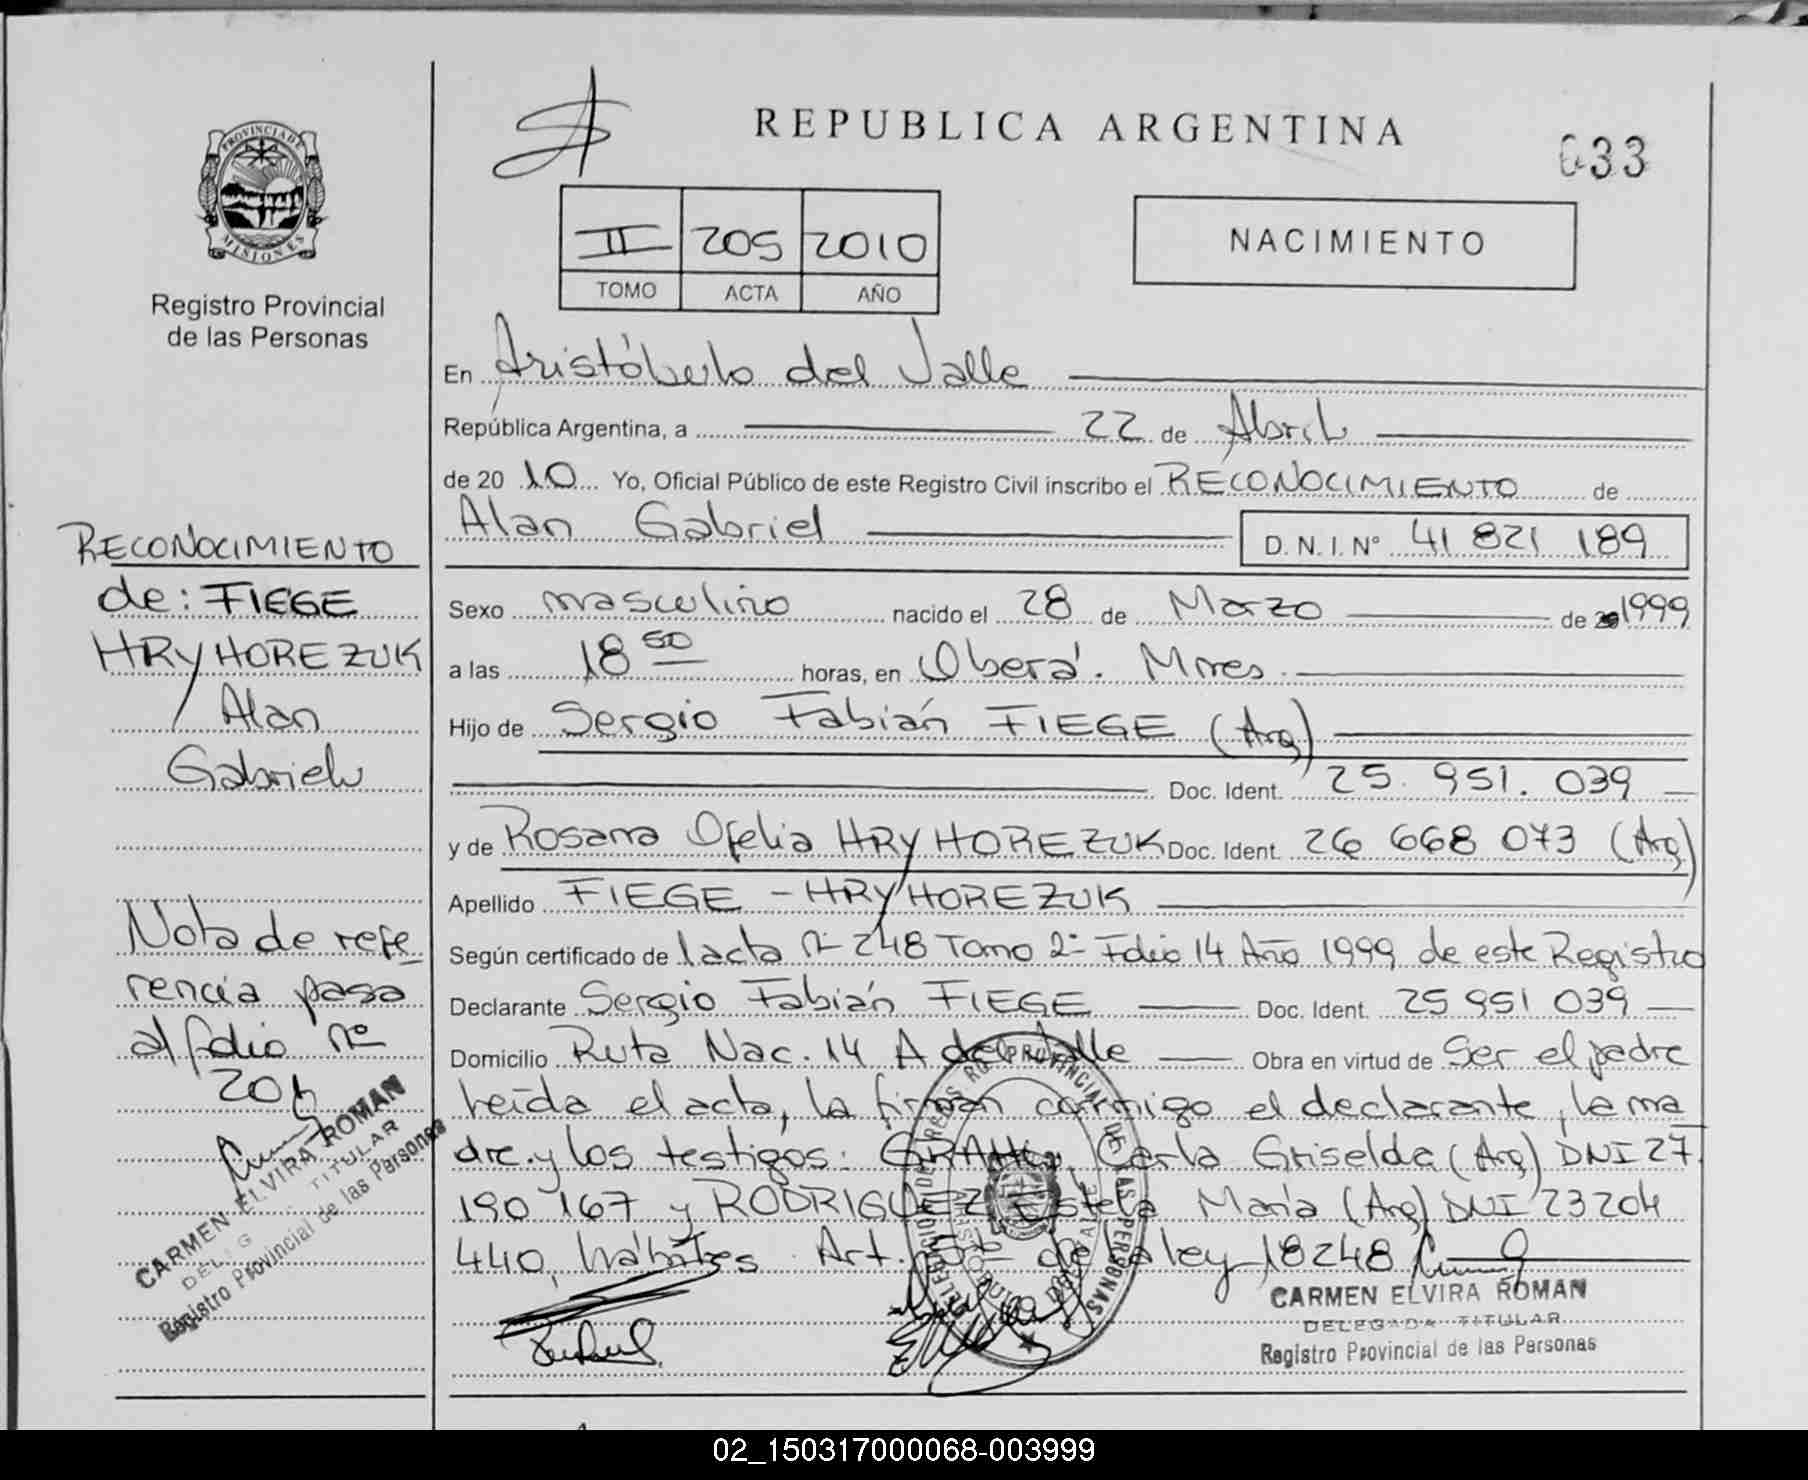 REPUBLICA ARGENTINA
033
PROVINCIA DE
MISIONES
Registro Provincial
de las Personas
II 205 2010
TOMO ACTA AÑO
NACIMIENTO
En Aristóbulo del Valle
República Argentina, a 22 de Abril
de 20 10 Yo, Oficial Público de este Registro Civil inscribo el RECONOCIMIENTO de
Alan Gabriel
D. N. I. N° 41 821 189
Sexo masculino nacido el 28 de Marzo de 1999
a las 18 50 horas, en Oberá. Mnes.
Hijo de Sergio Fabián FIEGE (Arg)
Doc. Ident. 25. 951. 039
y de Rosana Ofelia HRYHOREZUK Doc. Ident. 26 668 073 (Arg)
Apellido FIEGE - HRYHOREZUK
Según certificado de 1 acta N° 248 Tomo 2° Folio 14 Año 1999 de este Registro
Declarante Sergio Fabián FIEGE Doc. Ident. 25 951 039
Domicilio Ruta Nac. 14 A del Valle Obra en virtud de Ser el padre
Leída el acta, la firman conmigo el declarante, la ma
dre y los testigos: Carla Griselda (Arg) DNI 27
190 167 y RODRIGUEZ Estela María (Arg) DNI 23 204
440, hábiles. Art. de la ley 18248
CARMEN ELVIRA ROMAN
DELEGADA TITULAR
Registro Provincial de las Personas
RECONOCIMIENTO
de: FIEGE
HRYHOREZUK
Alan
Gabriel
Nota de refe
rencia pasa
al folio N°
204
CARMEN ELVIRA ROMAN
TITULAR
Registro Provincial de las Personas
02_150317000068-003999